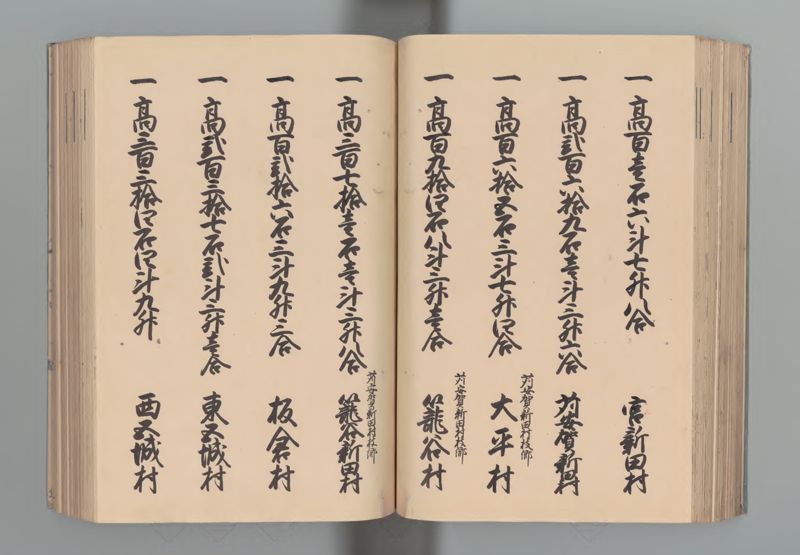 一 高百壱石六斗七升八合 宮新田村
一 高弐百六拾九石壱斗三升六合 苅安賀新田村
一 高百六拾五石三斗七升四合 苅安賀新田村枝郷 大平村
一 高百九拾四石八斗三升壱合 苅安賀新田村枝郷 籠谷村
一 高三百七拾壱石壱斗三升八合 苅安賀新田村枝郷 籠谷新田村
一 高百弐拾六石三斗九升三合 板倉村
一 高弐百三拾七石弐斗三升壱合 東五城村
一 高三百三拾四石四斗九升 西五城村